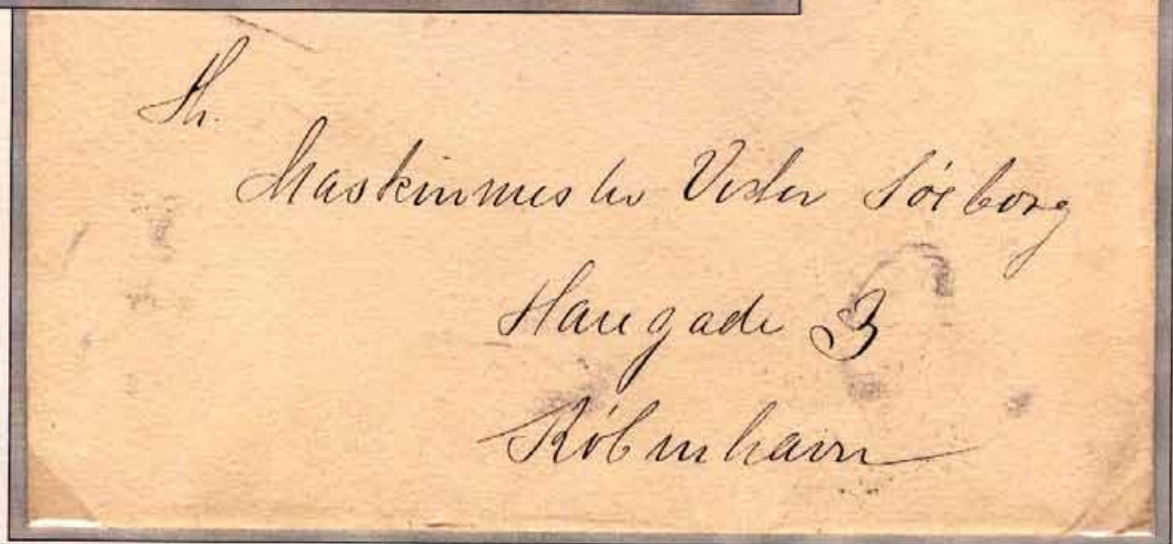 Hr.
Maskinmester Vester Söeborg
Haregade 3
Köbenhavn